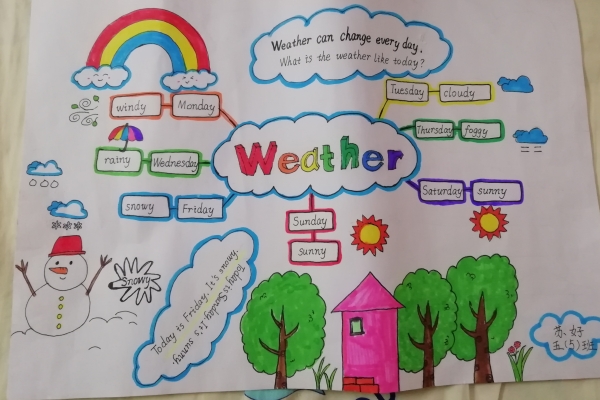 Weather can change every day.
What is the weather like today?
windy Monday
Tuesday cloudy
rainy Wednesday
Weather
Thursday foggy
snowy Friday
Saturday sunny
Sunday
sunny
Snowy
Today is Friday. It's snowy.
Today is Sunday. It's sunny.
苏 好
五(5)班